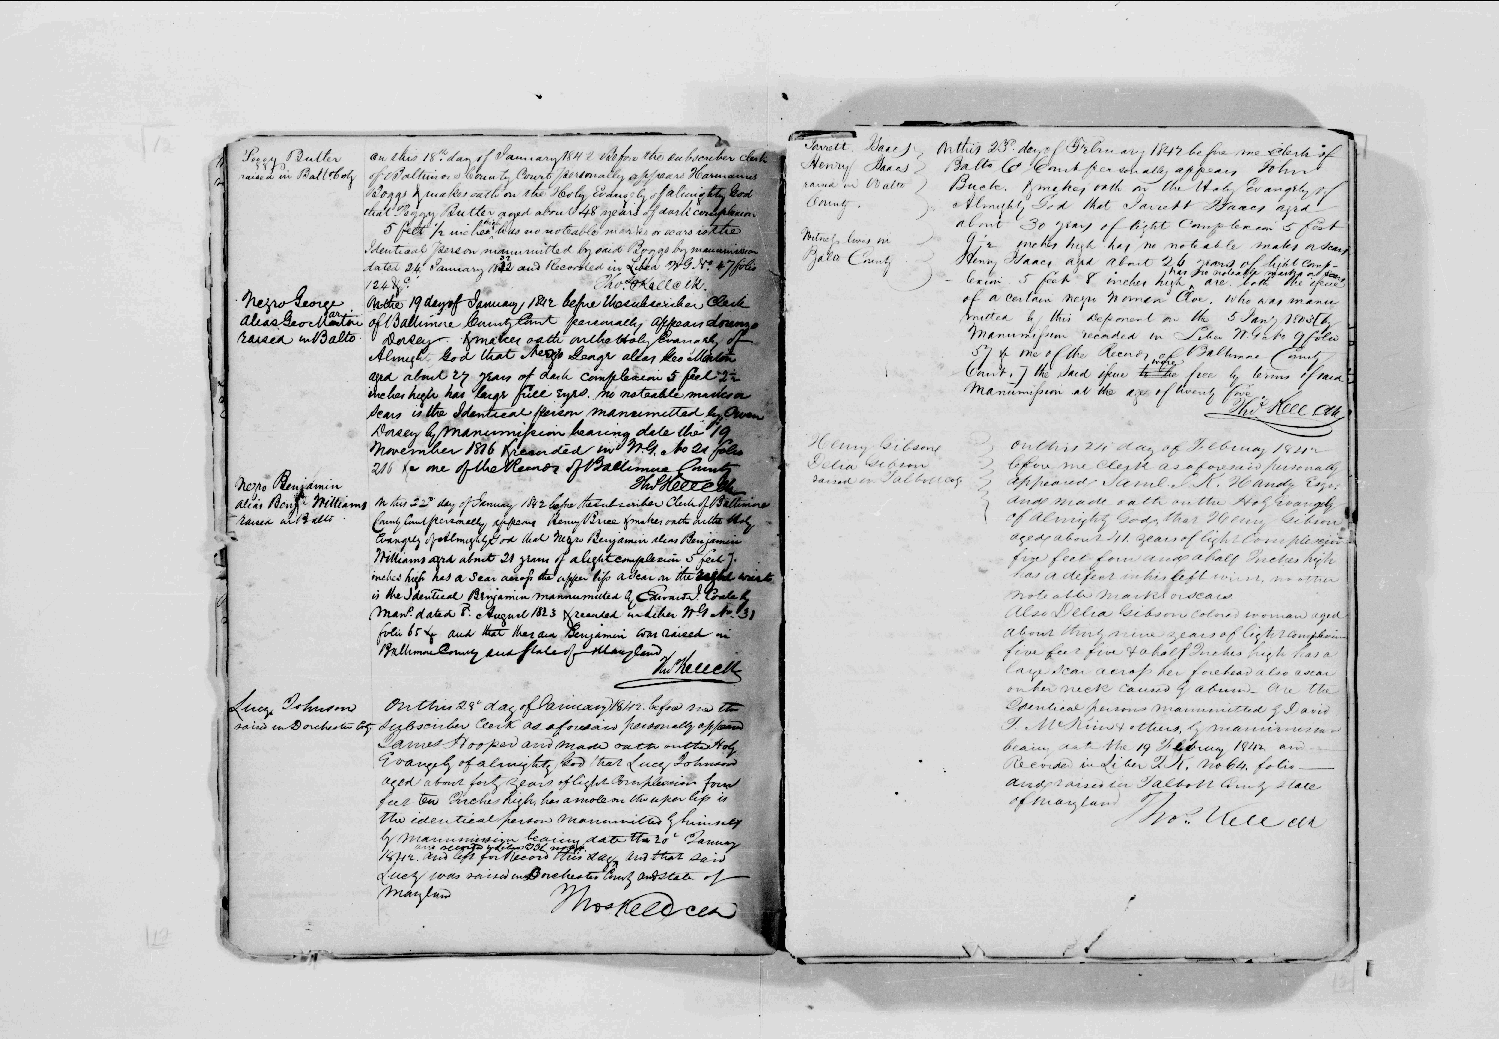 Peggy Butler
raised in Balt Coty
On this 18th day of January 1842 before the subscriber clerk
of Baltimore County Court personally appears Harmanus
Boggs & makes oath on the Holy Evangely of Almighty God
that Peggy Butler aged about 48 years of dark complexion
5 feet 1/2 inches has no noteable marks or scars is the
Identical person manumitted by said Boggs by manumission
dated 24 January 1832 and Recorded in Liber W.G. No 47 folio
124 &c.
Thos Kell Clk.
Negro George
alias Geo Martin
raised in Balto.
On the 19 day of January 1842 before the subscriber Clerk
of Baltimore County Court personally appears
Dorsey & makes oath on the Holy Evangely of
Almighty God that Negro George alias Geo Martin
aged about 27 years of dark complexion 5 feet 2 1/2
inches high has large full Eyes, no noteable marks or
scars is the Identical person manumitted by Owen
Dorsey by manumission bearing date the 19
November 1816 & recorded in W.G. No 21 folio
216 &c one of the Records of Baltimore County
Thos Kell Clk
Negro Benjamin
alias Benj Williams
raised in Balto.
On this 22d day of January 1842 before the subscriber Clerk of Baltimore
County Court personally appears Henry Price & makes oath on the Holy
Evangely of Almighty God that Negro Benjamin alias Benjamin
Williams aged about 21 years of a light complexion 5 feet 7
inches high has a scar across the upper lip a scar on the right wrist
is the Identical Benjamin manumitted by Edward J Coale by
Man. dated 8 August 1823 & recorded in Liber W.G No. 31
folio 65 &c and that the said Benjamin was raised in
Baltimore County and State of Maryland
Thos Kell Clk
Lucy Johnson
raised in Dorchester Cty
On this 28 day of January 1842 before me the
Subscriber Clerk as aforesaid personally appeared
James Hooper and made oath on the Holy
Evangely of almighty God that Lucy Johnson
aged about forty years of light complexion four
feet ten Inches high, has a mole on the upper lip is
the identical person manumitted by himself
by manumission bearing date the 20 January
1842 and left for Record this day, and that said
Lucy was raised in Dorchester County and State of
Maryland
Thos Kell Clk
Jarrett Isaacs
Henry Isaacs
raised in Balto
County.
Witness lives in
Balto County
On this 23d day of February 1842 before me Clerk of
Balto Co Court personally appears John
Buck & makes oath on the Holy Evangely of
Almighty God that Jarrett Isaacs aged
about 30 years of light complexion 5 feet
9 1/2 inches high has no noteable marks or scars
Henry Isaacs aged about 26 years of light comp-
lexion 5 feet 8 inches high, has no noteable marks or scars are both the issue
of a certain negro Woman Cloe, who was manu
mitted by this deponent on the 5 Jany by
Manumission recorded in Liber W.G. folio
57 & one of the Records of Baltimore County
Court, & the said issue were free by terms of said
Manumission at the age of twenty five
Thos Kell Clk
Henry Gibson
Delia Gibson
raised in Talbott coy
On this 24 day of Februy 1842
before me Clerk as aforesaid personally
appeared Saml. J. K. Handy Esqr.
and made oath on the Holy Evangely
of Almighty God, that Henry Gibson
aged about 41 years of light complexion
five feet four and a half Inches high
has a defect in his left wrist, no other
noteable mark or scars
Also Delia Gibson colored woman aged
about thirty nine years of light complexion
five feet five & a half Inches high has a
large scar across her forehead also a scar
on her neck caused by a burn. Are the
Identical persons manumitted by David
T. McKim & others, by manumission
bearing date the 19 Februy 1842 and
Recorded in Liber T.K. No 64. folio
and raised in Talbott County State
of Maryland
Thos Kell Clk